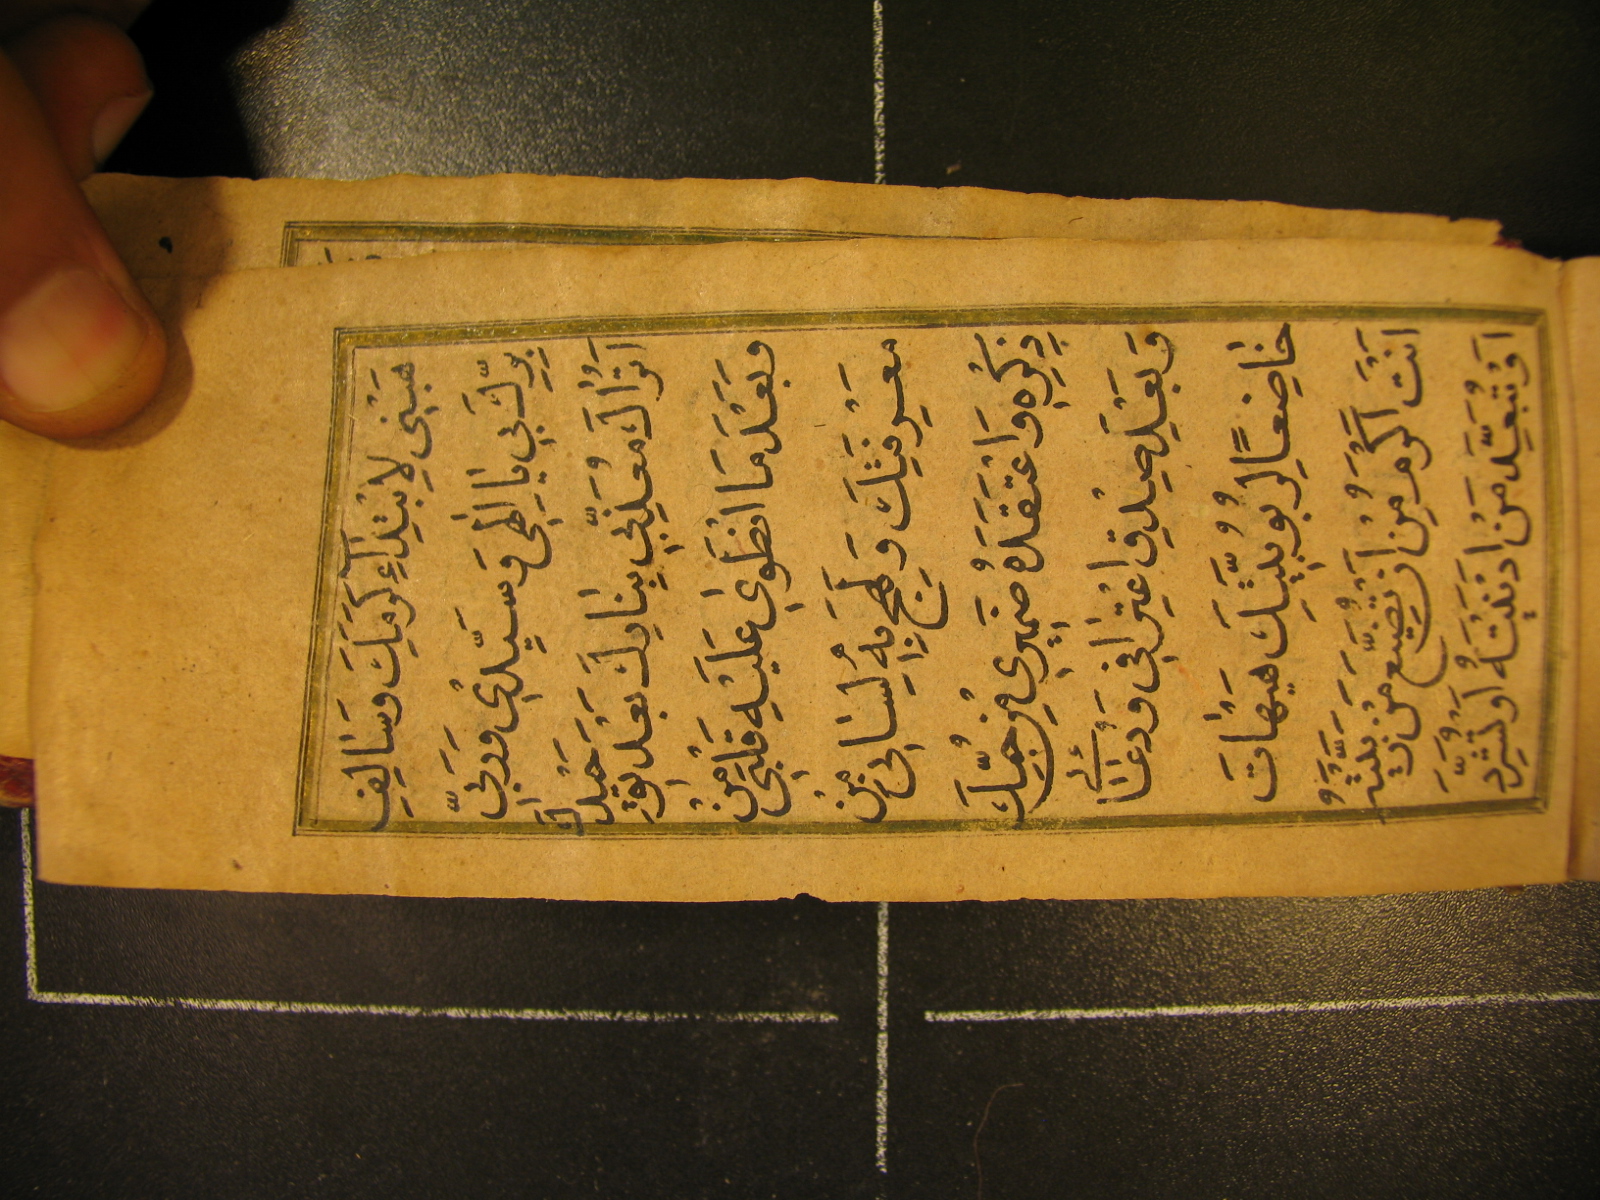 هَبْنِي لِابْتِدَآءِ كَرَمِكَ وَسَالِفِ
بِرِّكَ بِي يَا اِلٰهِي وَسَيِّدِي وَرَبِّي
اَتُرَاكَ مُعَذِّبِي بِنَارِكَ بَعْدَ تَوْحِيدِكَ
وَبَعْدَ مَا انْطَوٰى عَلَيْهِ قَلْبِي مِنْ
مَعْرِفَتِكَ وَلَهِجَ بِهِ لِسَانِي مِنْ
ذِكْرِهِ وَاعْتَقَدَهُ ضَمِيرِي مِنْ حُبِّكَ
وَبَعْدَ صِدْقِ اعْتِرَافِي وَدُعَائِي
خَاضِعًا لِرُبُوبِيَّتِكَ هَيْهَاتَ
اَنْتَ اَكْرَمُ مِنْ اَنْ تُضَيِّعَ مَنْ رَبَّيْتَهُ
اَوْ تُبَعِّدَ مَنْ اَدْنَيْتَهُ اَوْ تُشَرِّدَ